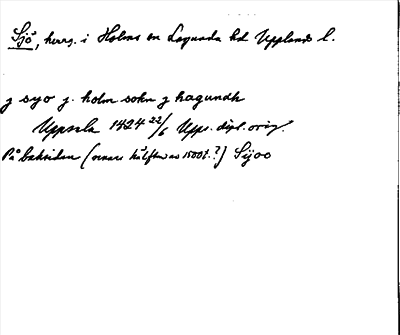 Sjö, herrg. i Holms sn Lagunda hd Upplands l.
j syo j. holm sokn j hagundh
Uppsala 1424 22/6 Upps. dipl. orig.
På baksidan (senare hälften av 1500t.?) Sijoo